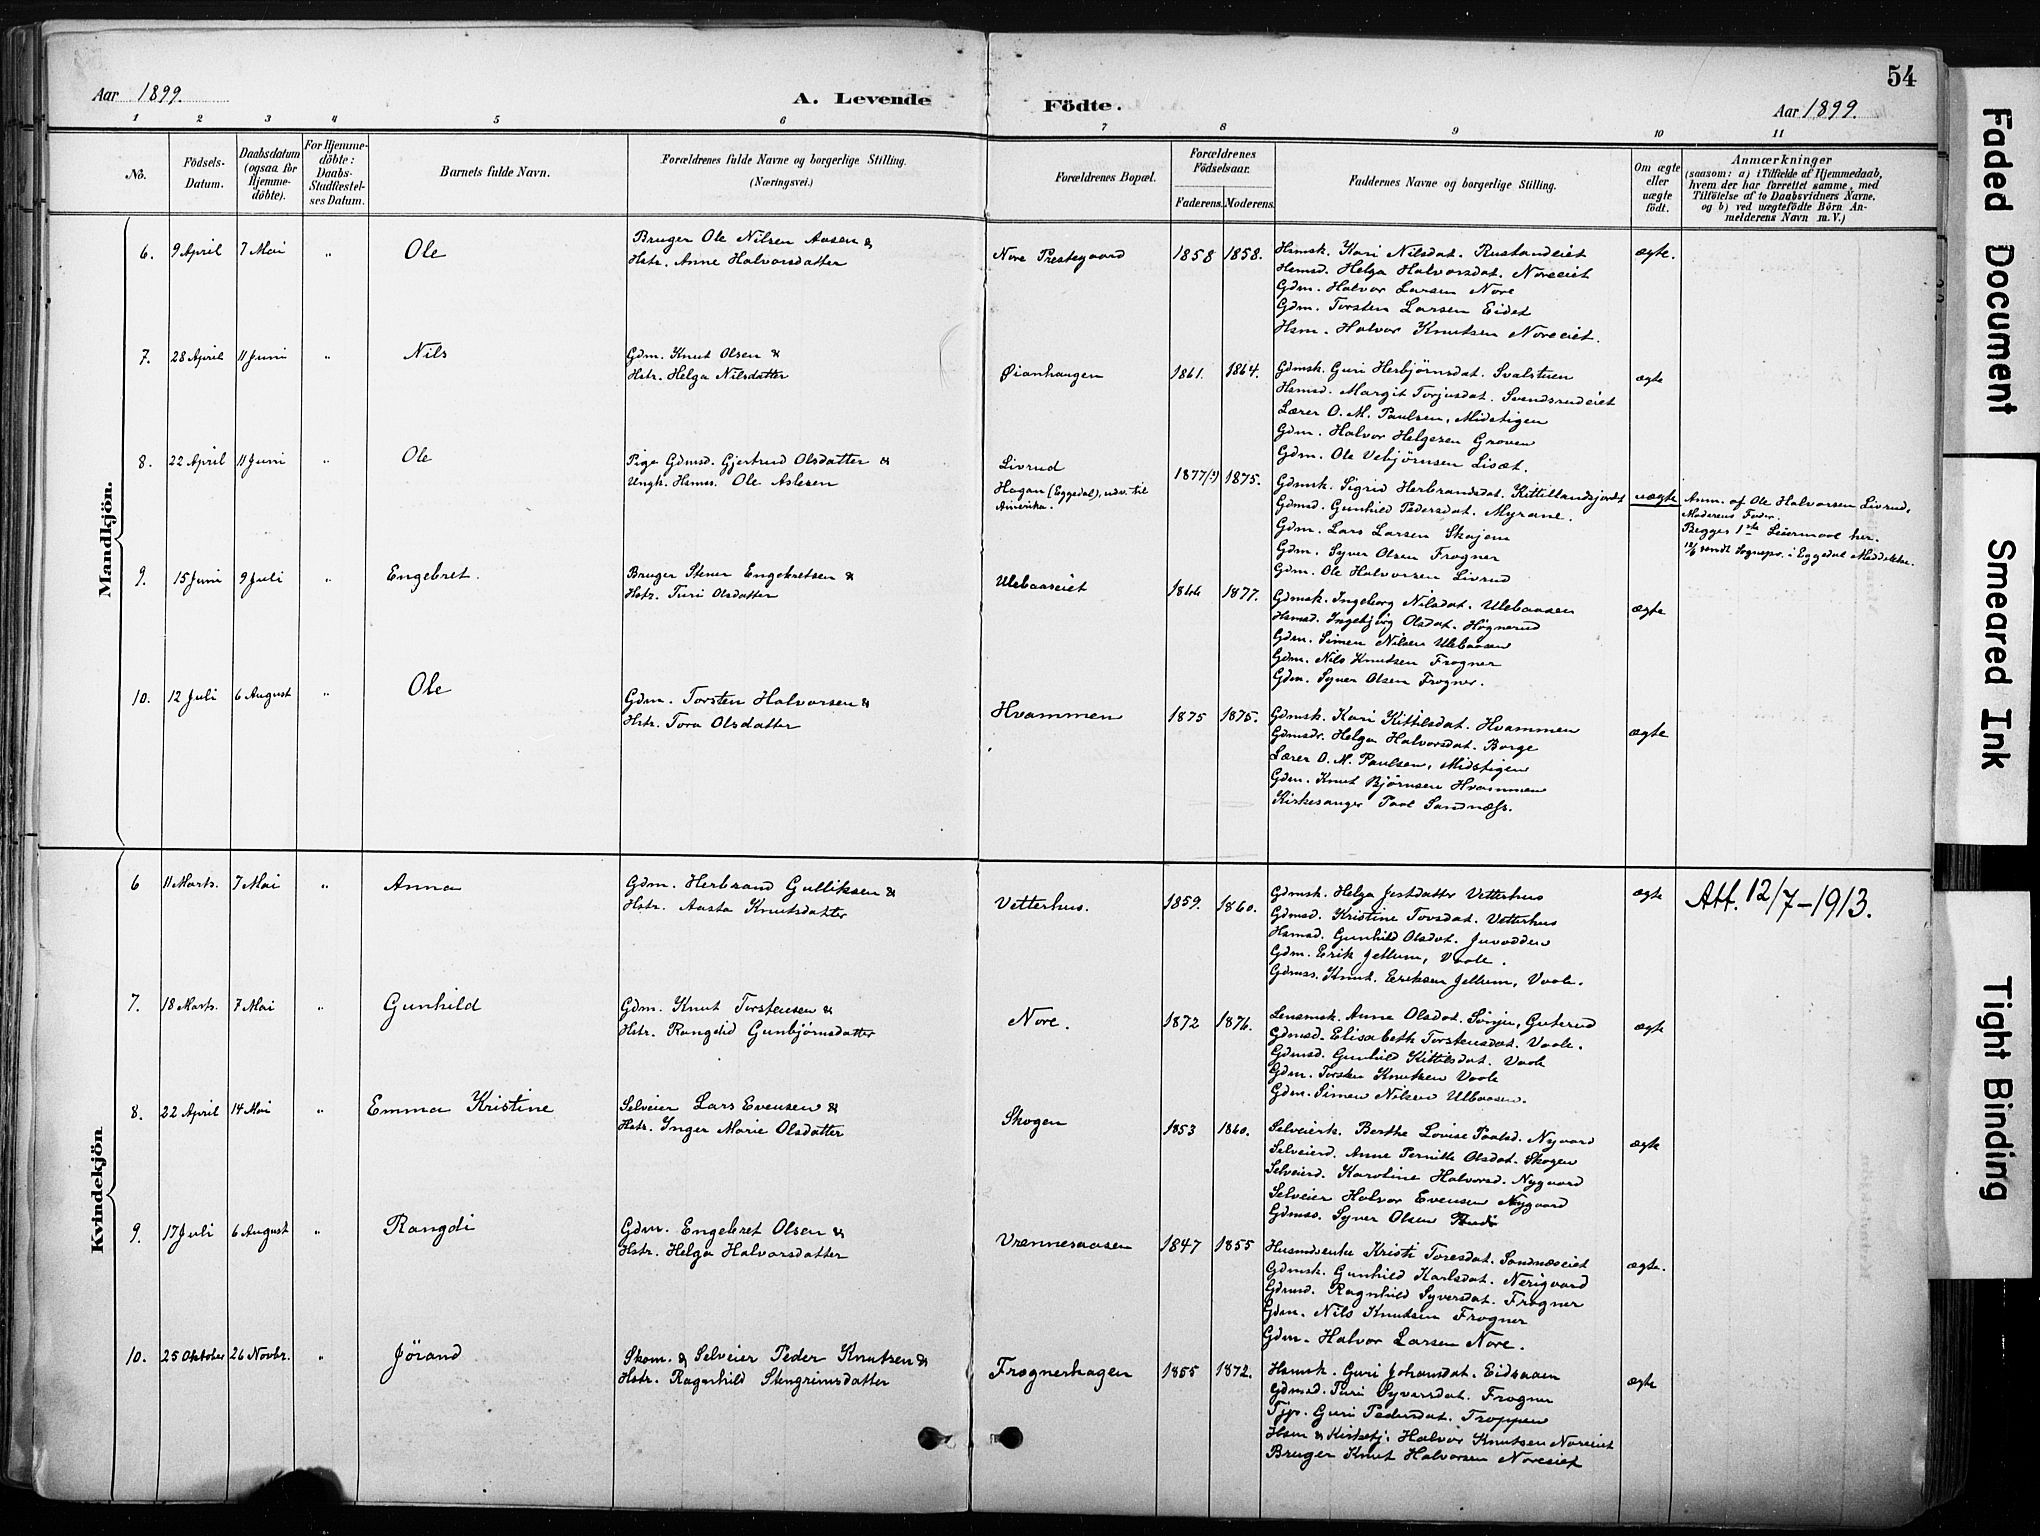 54
Aar 1899.
A. Levende Födte.
Aar 1899.
1 2 3 4 5 6 7 8 9 10 11
No.
Födsels-Datum.
Daabsdatum (ogsaa for Hjemme-döbte).
For Hjemme-döbte: Daabs-Stadfæstel-ses Datum.
Barnets fulde Navn.
Forældrenes fulde Navne og borgerlige Stilling. (Næringsvei.)
Forældrenes Bopæl.
Forældrenes Födselsaar.
Faderens. Moderens.
Faddernes Navne og borgerlige Stilling.
Om ægte eller uægte født.
Anmærkninger
(saasom: a) i Tilfælde af Hjemmedaab,
hvem der har forrettet samme, med
Tilföielse af to Daabsvidners Navne,
og b) ved uægtefödte Börn An-
melderens Navn m. V.)
Mandkjön.
6. 9 April 7 Mai „ Ole
Bruger Ole Nilsen Aasen &
Hstr. Anne Halvorsdatter
Nore Prestegaard 1858 1858.
Hsmsk. Kari Nilsdat. Rustandeiet
Hsmsd. Helga Halvorsdat. Noreeiet
Gdm. Halvor Larsen Nore
Gdm. Torsten Larsen Eidet
Hsm. Halvor Knutsen Noreeiet.
ægte.
7. 28 April 11 Juni „ Nils
Gdm. Knut Olsen &
Hstr. Helga Nilsdatter
Øianhaugen 1861. 1864.
Gdmsk. Guri Herbjørnsdat. Svalstuen
Hsmsd. Margit Torjusdat. Svendsrudeiet
Lærer O. M. Paulsen, Midstigen
Gdm. Halvor Helgesen Groven
Gdm. Ole Vebjørnsen Lisæt.
ægte
8. 22 April 11 Juni „ Ole
Pige Gdmsd. Gjertrud Olsdatter &
Ungk. Hsmss. Ole Aslesen
Livrud
Hagan (Eggedal), udv. til
Amerika.
1877(?) 1875.
Gdmsk. Sigrid Herbrandsdat. Kittillandsjordet
Gdmsd. Gunhild Pedersdat. Myrane.
Gdm. Lars Larsen Skajem
Gdm. Syver Olsen Frogner
Gdm. Ole Halvorsen Livrud
uægte
Anm. af Ole Halvorsen Livrud,
Moderens Fader.
Begges 1ste Leiermaal her.
12/6 sendt Sognepr. i Eggedal Meddelelse.
9. 15 Juni 9 Juli „ Engebret.
Bruger Stener Engebretsen &
Hstr. Turi Olsdatter
Ulebaaseiet 1844 1877.
Gdmsk. Ingeborg Nilsdat. Ulebaasen
Hsmsd. Ingebjørg Olsdat. Høgnerud
Gdm. Simen Nilsen Ulebaasen
Gdm. Nils Knutsen Frogner
Gdm. Syver Olsen Frogner.
ægte
10. 12 Juli 6 August „ Ole
Gdm. Torsten Halvorsen &
Hstr. Tora Olsdatter
Hvammen 1875 1875.
Gdmsk. Kari Kittilsdat. Hvammen
Gdmsdr. Helga Halvorsdat. Borge
Lærer O. M. Paulsen, Midstigen
Gdm. Knut Bjørnsen Hvammen
Kirkesanger Paal Sandnæss.
ægte
Kvindekjön
6 11 Marts. 7 Mai „ Anna
Gdm. Herbrand Gulliksen &
Hstr. Aasta Knutsdatter
Vetterhus. 1859. 1860.
Gdmsk. Helga Jostdatter Vetterhus
Gdmsd. Kristine Tovsdat. Vetterhus
Hsmsd. Gunhild Olsdat. Juvodden
Gdm. Erik Jellum, Vaale.
Gdmss. Knut Eriksen Jellum, Vaale.
ægte
Att. 12/7-1913.
7. 18 Marts. 7 Mai „ Gunhild
Gdm. Knut Torstensen &
Hstr. Rangdid Gunbjørnsdatter
Nore. 1872 1876.
Lensmsk. Anne Olsdat. Sønju, Guterud
Gdmsd. Elisabeth Torstensdat. Vaale.
Gdmsd. Gunhild Kittilsdat. Vaale
Gdm. Torsten Knutsen Vaale
Gdm. Simen Nilsen Ulbaasen.
ægte
8. 22 April 14 Mai „ Emma Kristine
Selveier Lars Evensen &
Hstr. Inger Marie Olsdatter
Skogen 1853 1860.
Selveierk. Berthe Lovise Paalsd. Nygaard
Selveierd. Anne Pernille Olsdat. Skogen
Selveierd. Karoline Halvorsd. Nygaard
Selveier Halvor Evensen Nygaard
Gdmss. Syver Olsen
ægte
9. 17 Juli 6 August „ Rangdi
Gdm. Engebret Olsen &
Hstr. Helga Halvorsdatter
Vrænnesaasen 1847 1855
Husmdsenke Kristi Toresdat. Sandnæseiet
Gdmsk. Gunhild Karlsdat. Nerigaard
Gdmsd. Ragnhild Syversdat. Frogner
Gdm. Nils Knutsen Frogner
Gdm. Halvor Larsen Nore.
ægte.
10. 25 Oktober 26 Novbr. „ Jörand
Skom. & Selveier Peder Knutsen &
Hstr. Ragnhild Stengrimsdatter
Frognerhagen 1855 1872.
Hsmsk. Guri Johansdat. Eidsaasen
Gdmsd. Turi Syversdat. Frogner
Tjp. Guri Pedersdat. Troppen
Hsm & Kirketj. Halvor Knutsen Noreeiet
Bruger Knut Halvorsen Noreeiet
ægte
Faded Document
Smeared Ink
Tight Binding